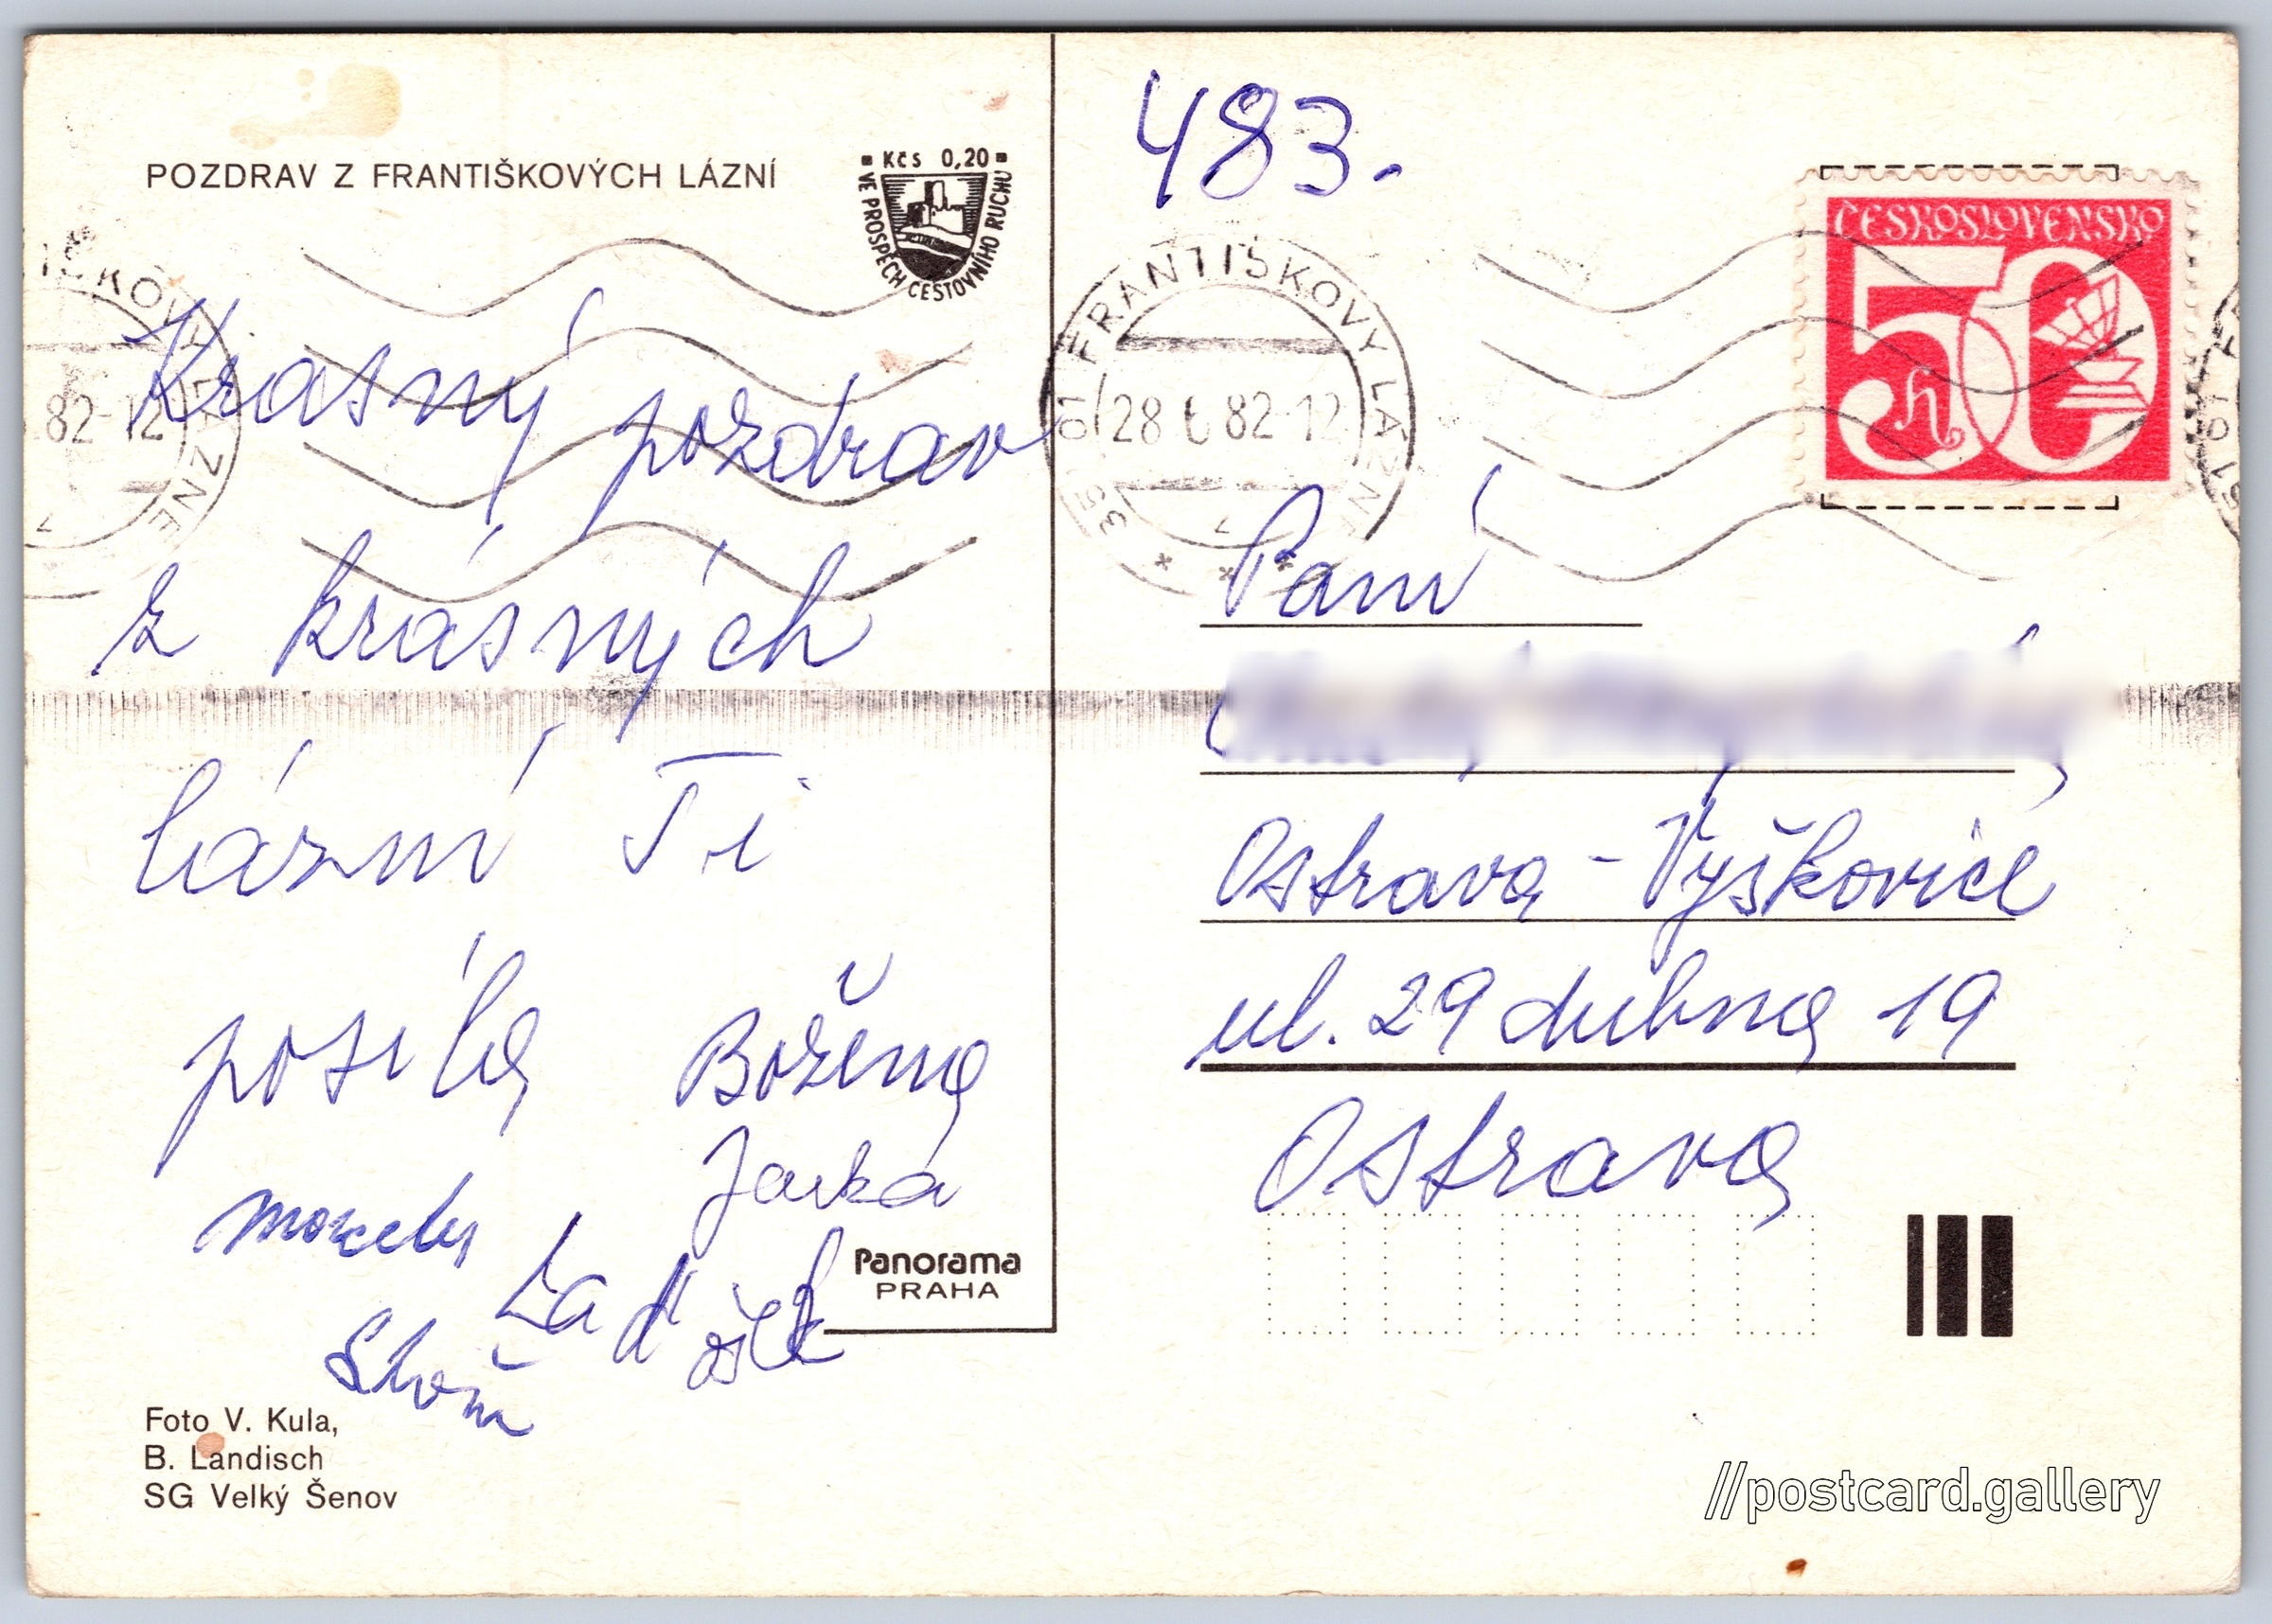 POZDRAV Z FRANTIŠKOVÝCH LÁZNÍ
Kčs 0,20
VE PROSPĚCH CESTOVNÍHO RUCHU
Krásný pozdrav
z krásných
lázní Ti
posílá Božena
Jarka
Laďošek
Foto V. Kula,
B. Landisch
SG Velký Šenov
Panorama
PRAHA
483.
ČESKOSLOVENSKO
50 h
351 01 FRANTIŠKOVY LÁZNĚ
28 6 82-12
IŠKOVY LÁZNĚ
82-12
Paní
Ostrava - Vyškovice
ul. 29 dubna 19
Ostrava
//postcard.gallery